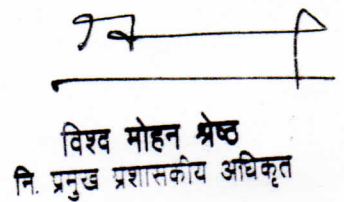 विश्व मोहन श्रेष्ठ
नि. प्रमुख प्रशासकीय अधिकृत